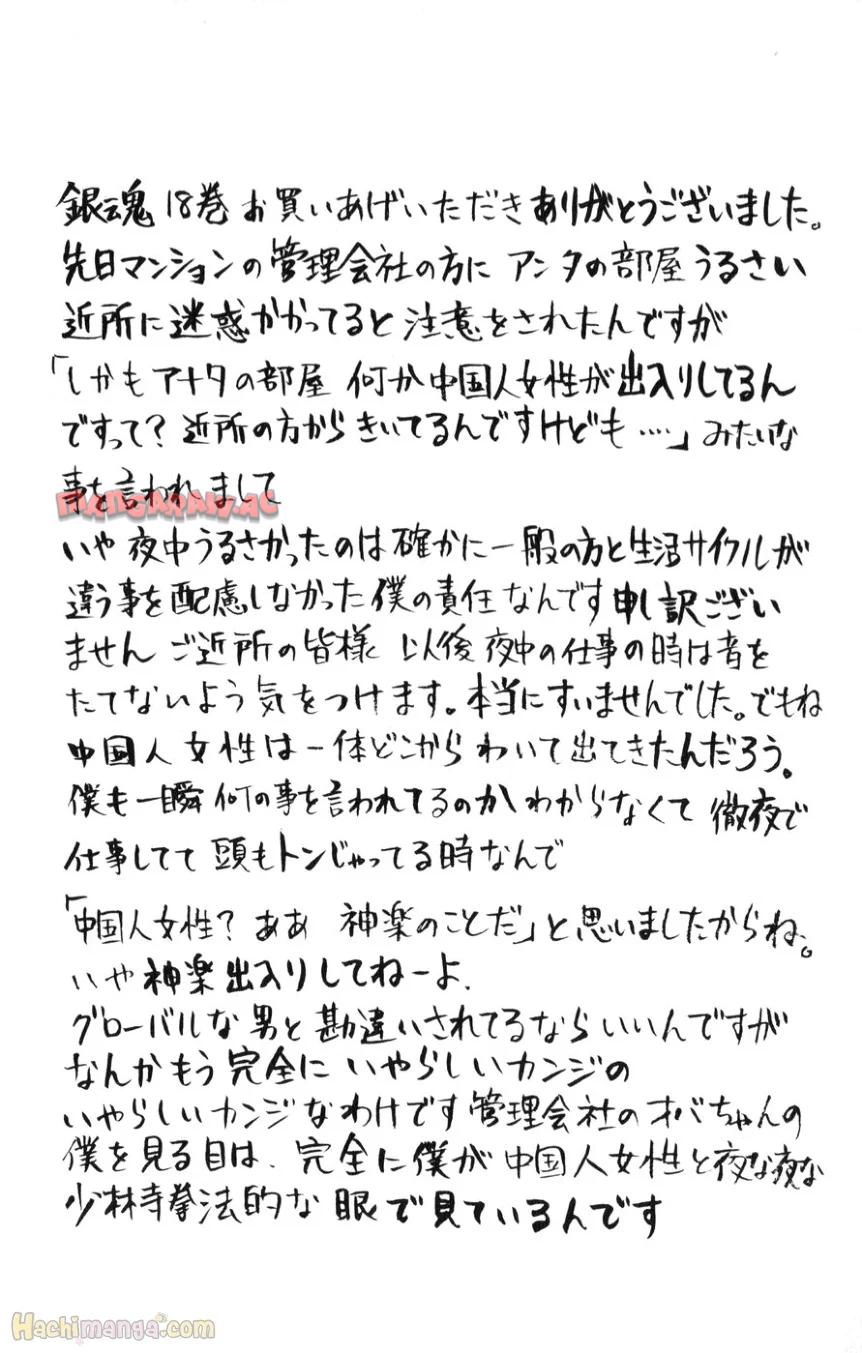 銀魂 18巻 お買いあげいただき ありがとうございました。
先日マンションの管理会社の方に アンタの部屋 うるさい
近所に迷惑かかってると 注意をされたんですが
「しかもアナタの部屋 何か中国人女性が出入りしてるん
ですって? 近所の方からきいてるんですけども‥‥」みたいな
事を言われまして
いや 夜中うるさかったのは確かに一般の方と生活サイクルが
違う事を配慮しなかった僕の責任なんです 申し訳ござい
ません ご近所の皆様 以後 夜中の仕事の時は音を
たてないよう気をつけます。本当にすいませんでした。でもね
中国人女性は一体どこからわいて出てきたんだろう。
僕も一瞬何の事を言われてるのかわからなくて 徹夜で
仕事してて 頭もトンじゃってる時なんで
「中国人女性? ああ 神楽のことだ」と思いましたからね。
いや神楽出入りしてねーよ.
グローバルな男と勘違いされてるならいいんですが
なんかもう完全に いやらしいカンジの
いやらしいカンジなわけです 管理会社のオバちゃんの
僕を見る目は、完全に僕が中国人女性と夜な夜な
少林寺拳法的な眼で見ているんです
MANGARAW.AC
Hachimanga.com